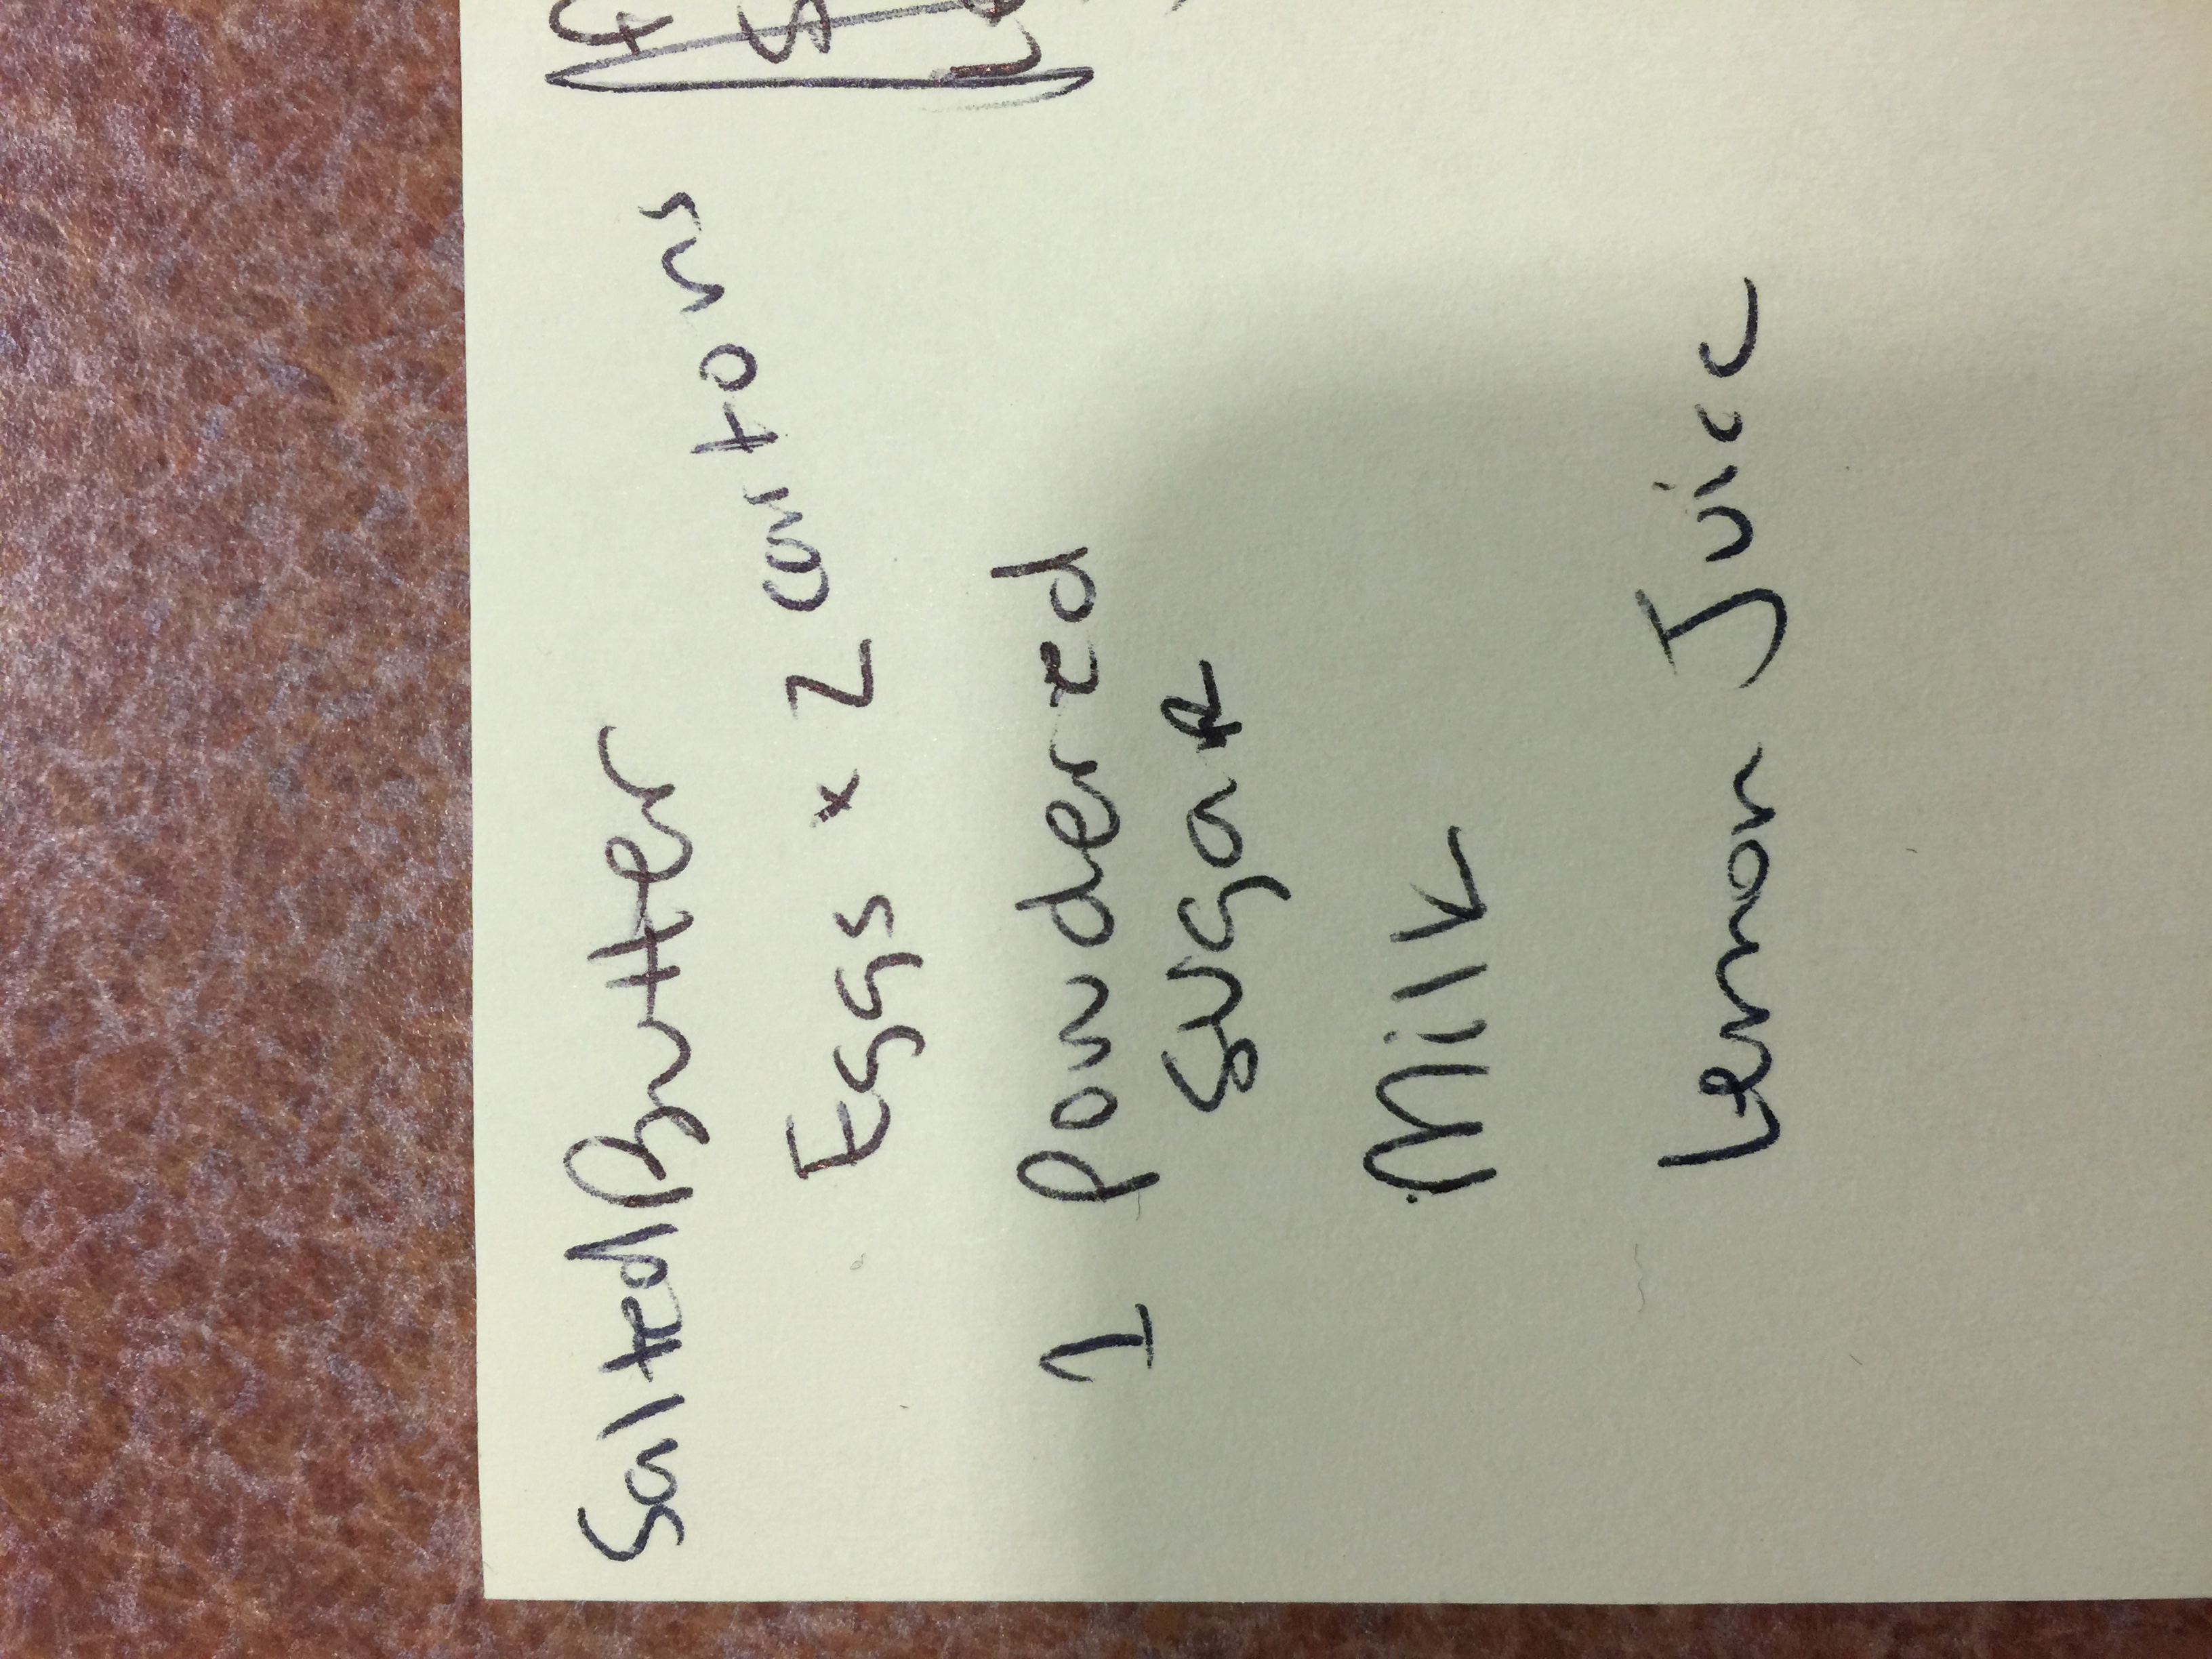 Salted Butter
Eggs x 2 cartons
1 Powdered
sugar
Milk
Lemon Juice